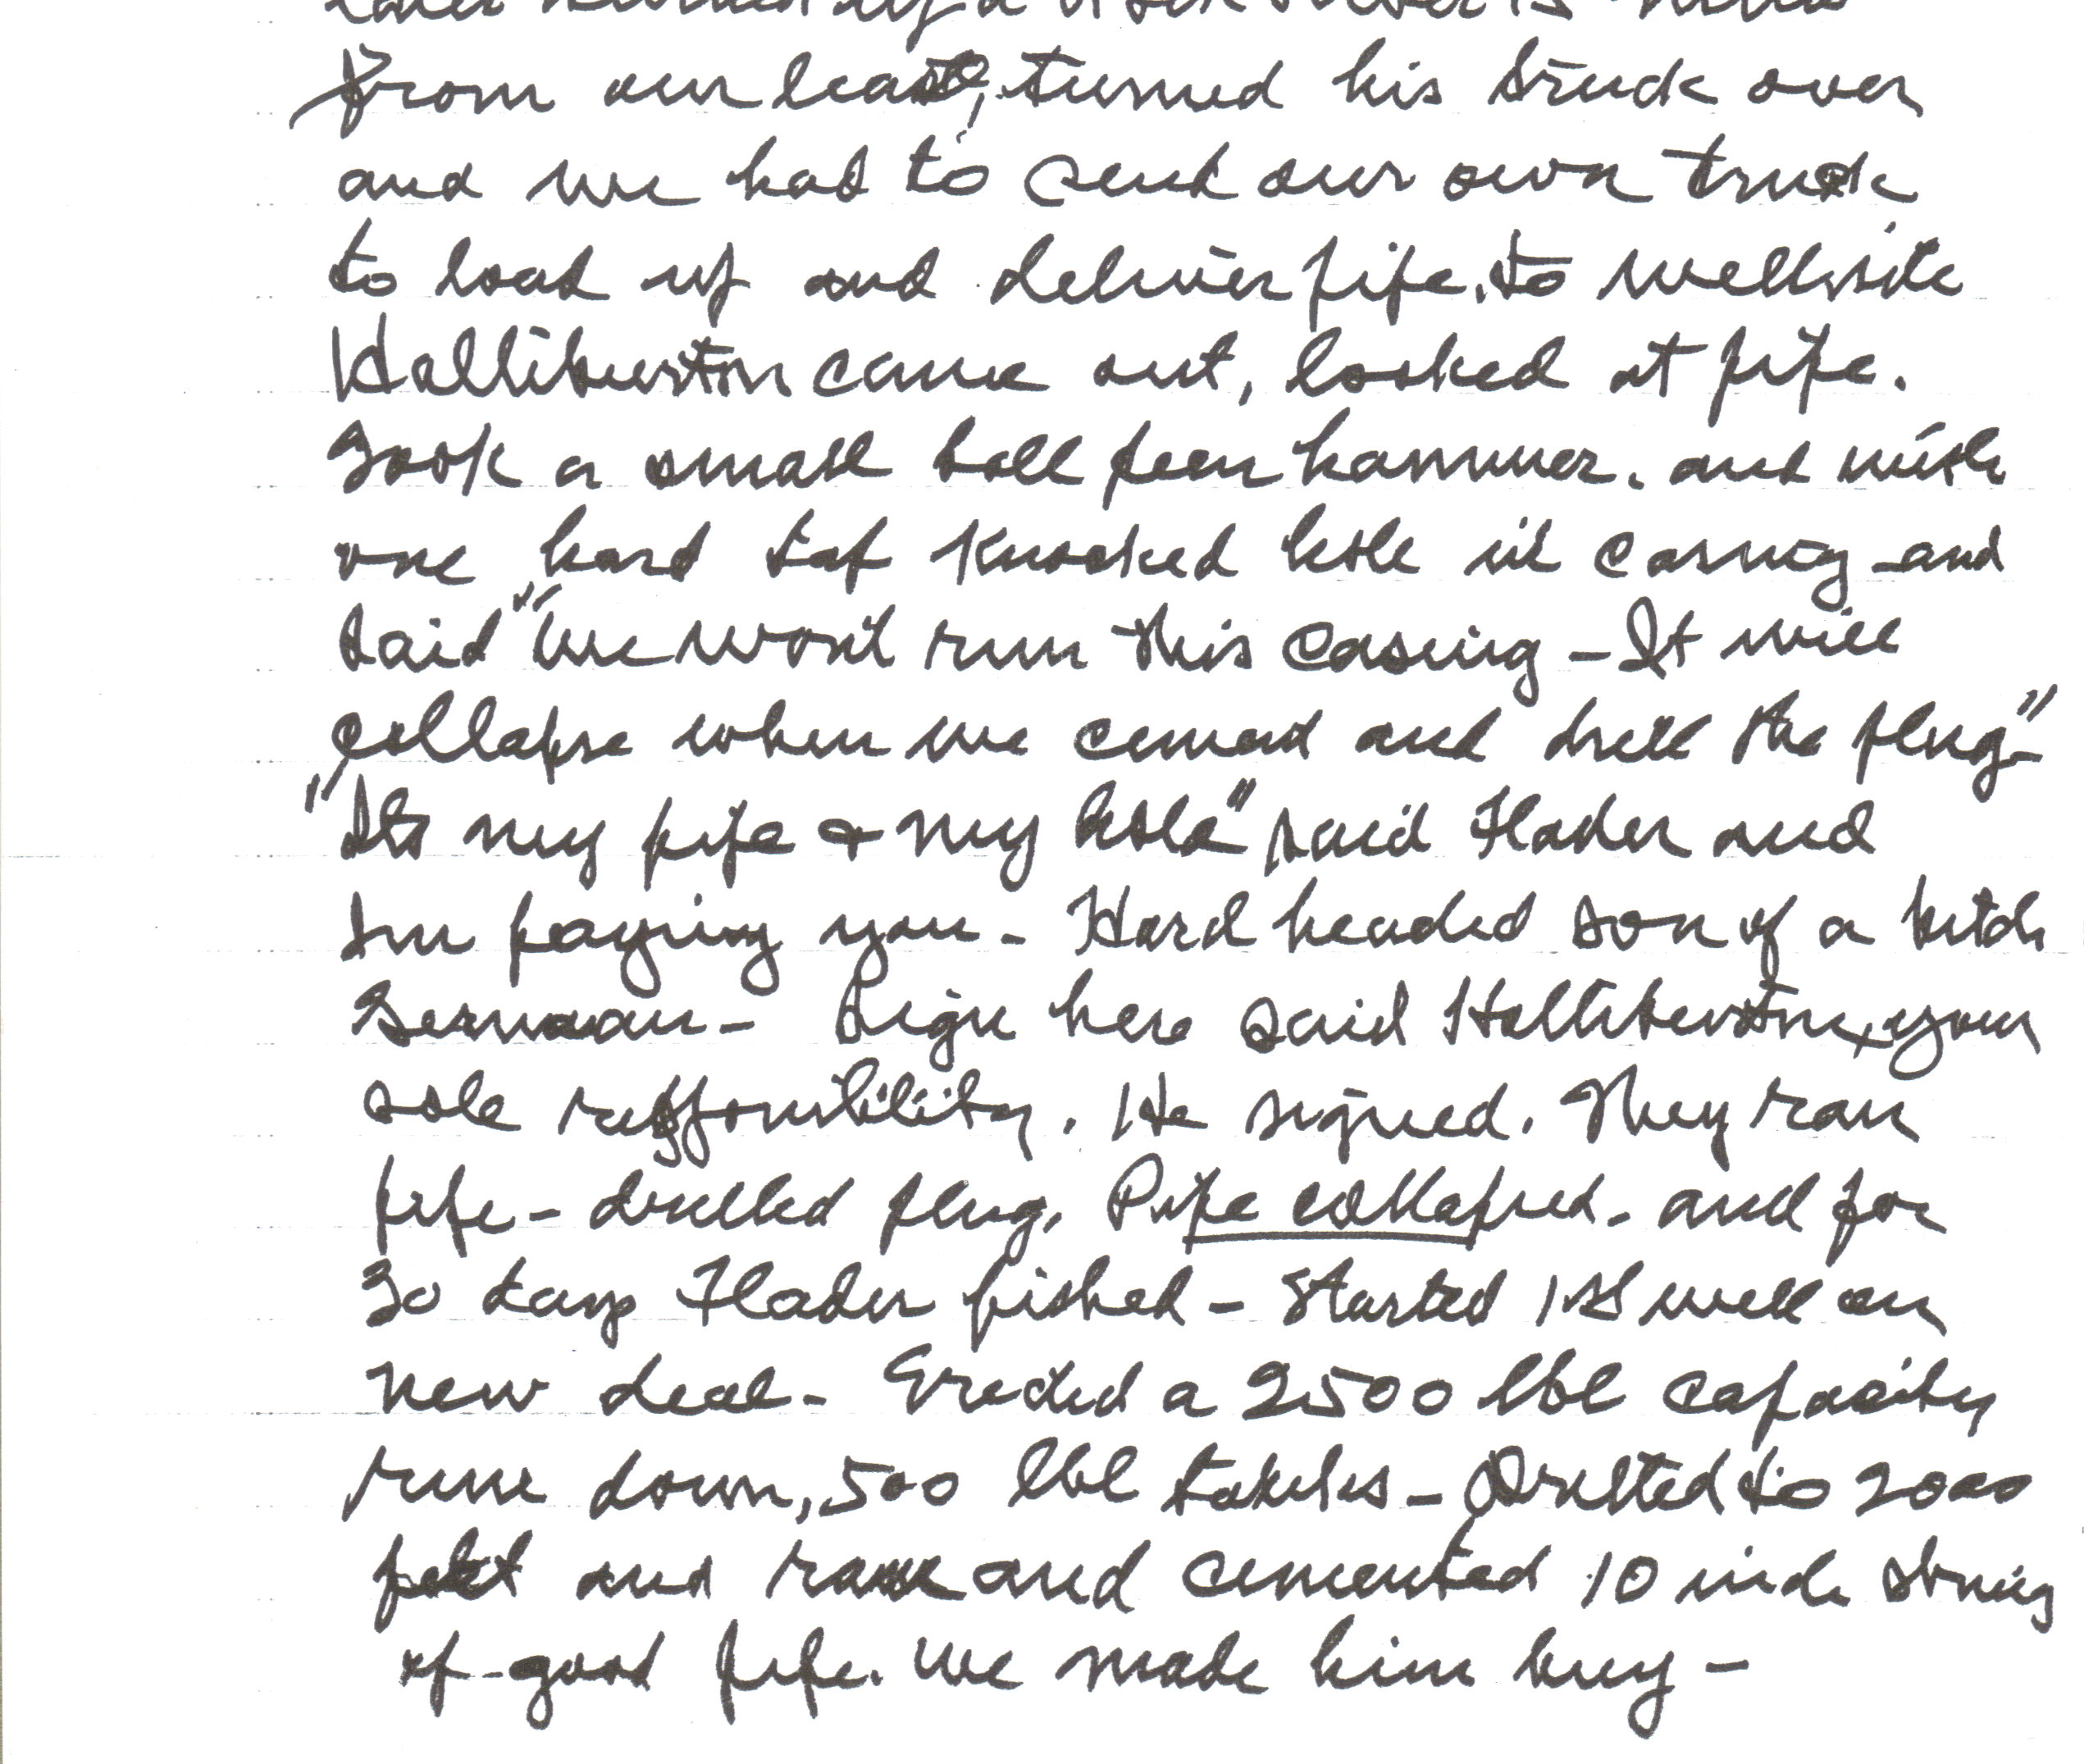 from our lease, turned his truck over
and we had to send our own truck
to load up and deliver pipe. to wellsite
Halliburton came out, looked at pipe.
Took a small ball peen hammer. and with
one hard tap knocked hole in casing and
said "We won't run this casing - It will
collapse when we cement and drill the plug" -
"Its my pipe & my hole" said Flader and
Im paying you - Hard headed son of a bitch
German - Sign here said Halliburton, your
sole responsibility. He signed. They ran
pipe - drilled plug, Pipe collapsed. and for
30 days Flader fished - Started 1st well on
new deal - Erected a 2500 bbl capacity
run down, 500 bbl - Drilled to 2000
feet and ran and cemented 10 inch string
of good pipe. We made him buy -